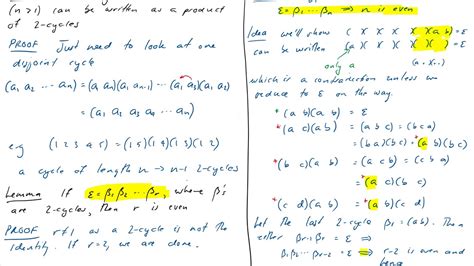 (n>1) can be written as a product
of 2-cycles
PROOF Just need to look at one
disjoint cycle
(a₁ a₂ ⋯ aₙ) = (a₁ aₙ)(a₁ aₙ₋₁) ⋯ (a₁ a₃)(a₁ a₂)
= (a₁ a₂ a₃ a₄ ⋯ aₙ)
eg (1 2 3 4 5) = (1 5)(1 4)(1 3)(1 2)
a cycle of length n → n-1 2-cycles
Lemma If ε = β₁β₂ ⋯ βᵣ, where β's
are 2-cycles, then r is even
PROOF r≠1 as a 2-cycle is not the
identity. If r=2, we are done.
ε = β₁ ⋯ βₙ ⟹ n is even
Idea we'll show ( X X X X X X)(a b) = ε
can be written (a X)( X )( X ) = ε
only a
which is a contradiction unless we
reduce to ε on the way.
(a b)(a b) = ε
(a c)(a b) = (a b c) = (b c a)
= (b a)(b c) = (a b)(b c)
(b c)(a b) = (a c b)
= (a c)(b c)
(c d)(a b) = (a b)(c d)
Let the last 2-cycle βᵣ = (a b). Then
either βᵣ₋₁βᵣ = ε ⟹
β₁β₂ ⋯ βᵣ₋₂ = ε ⟹ r-2 is even and
hence